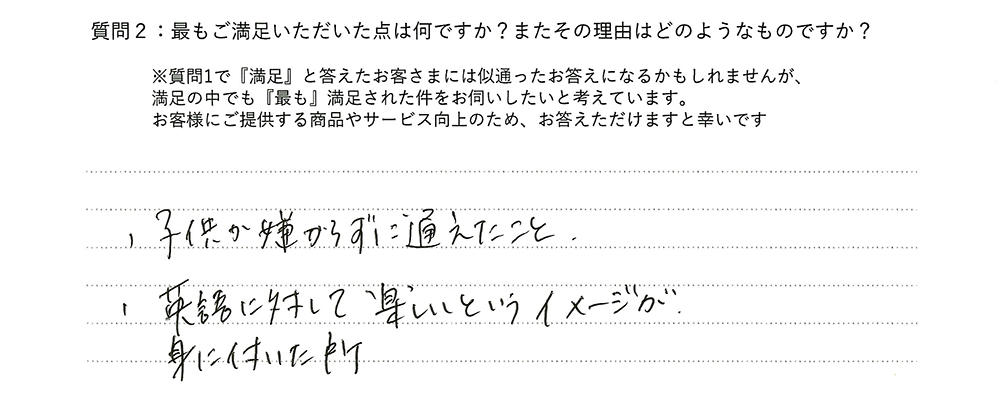 質問２：最もご満足いただいた点は何ですか？またその理由はどのようなものですか？
※質問1で『満足』と答えたお客さまには似通ったお答えになるかもしれませんが、
満足の中でも『最も』満足された件をお伺いしたいと考えています。
お客様にご提供する商品やサービス向上のため、お答えただけますと幸いです
、子供が嫌がらずに通えたこと．
、英語に対して楽しいというイメージが．
身に付いた所